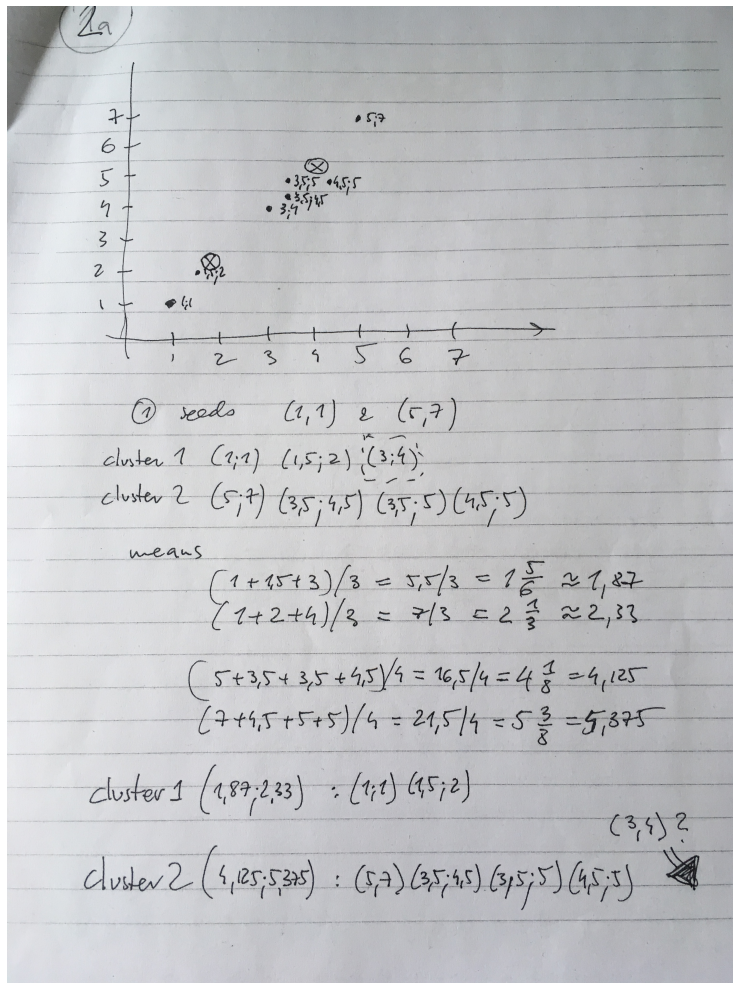 2a
7
• 5;7
6
5
• 3,5;5 • 4,5;5
• 3,5;4,5
4
• 3;4
3
2
• 1,5;2
1
• 1;1
1 2 3 4 5 6 7
① seeds (1,1) & (5,7)
cluster 1 (1;1) (1,5;2) (3;4)
cluster 2 (5;7) (3,5;4,5) (3,5;5) (4,5;5)
means
(1+1,5+3)/3 = 5,5/3 = 1 5/6 ≈ 1,87
(1+2+4)/3 = 7/3 = 2 1/3 ≈ 2,33
(5+3,5+3,5+4,5)/4 = 16,5/4 = 4 1/8 = 4,125
(7+4,5+5+5)/4 = 21,5/4 = 5 3/8 = 5,375
cluster 1 (1,87;2,33) : (1;1) (1,5;2)
(3,4) ?
cluster 2 (4,125;5,375) : (5,7) (3,5;4,5) (3,5;5) (4,5;5)